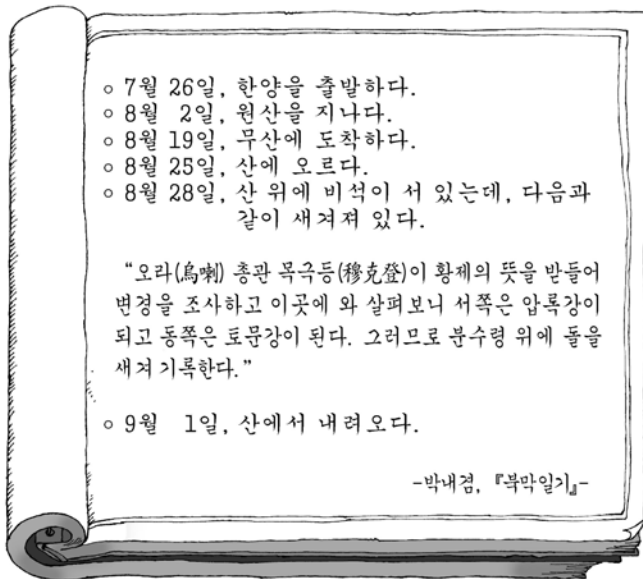 ◦ 7월 26일, 한양을 출발하다.
◦ 8월 2일, 원산을 지나다.
◦ 8월 19일, 무산에 도착하다.
◦ 8월 25일, 산에 오르다.
◦ 8월 28일, 산 위에 비석이 서 있는데, 다음과
같이 새겨져 있다.
“오라(烏喇) 총관 목극등(穆克登)이 황제의 뜻을 받들어
변경을 조사하고 이곳에 와 살펴보니 서쪽은 압록강이
되고 동쪽은 토문강이 된다. 그러므로 분수령 위에 돌을
새겨 기록한다.”
◦ 9월 1일, 산에서 내려오다.
-박내겸, 『북막일기』-